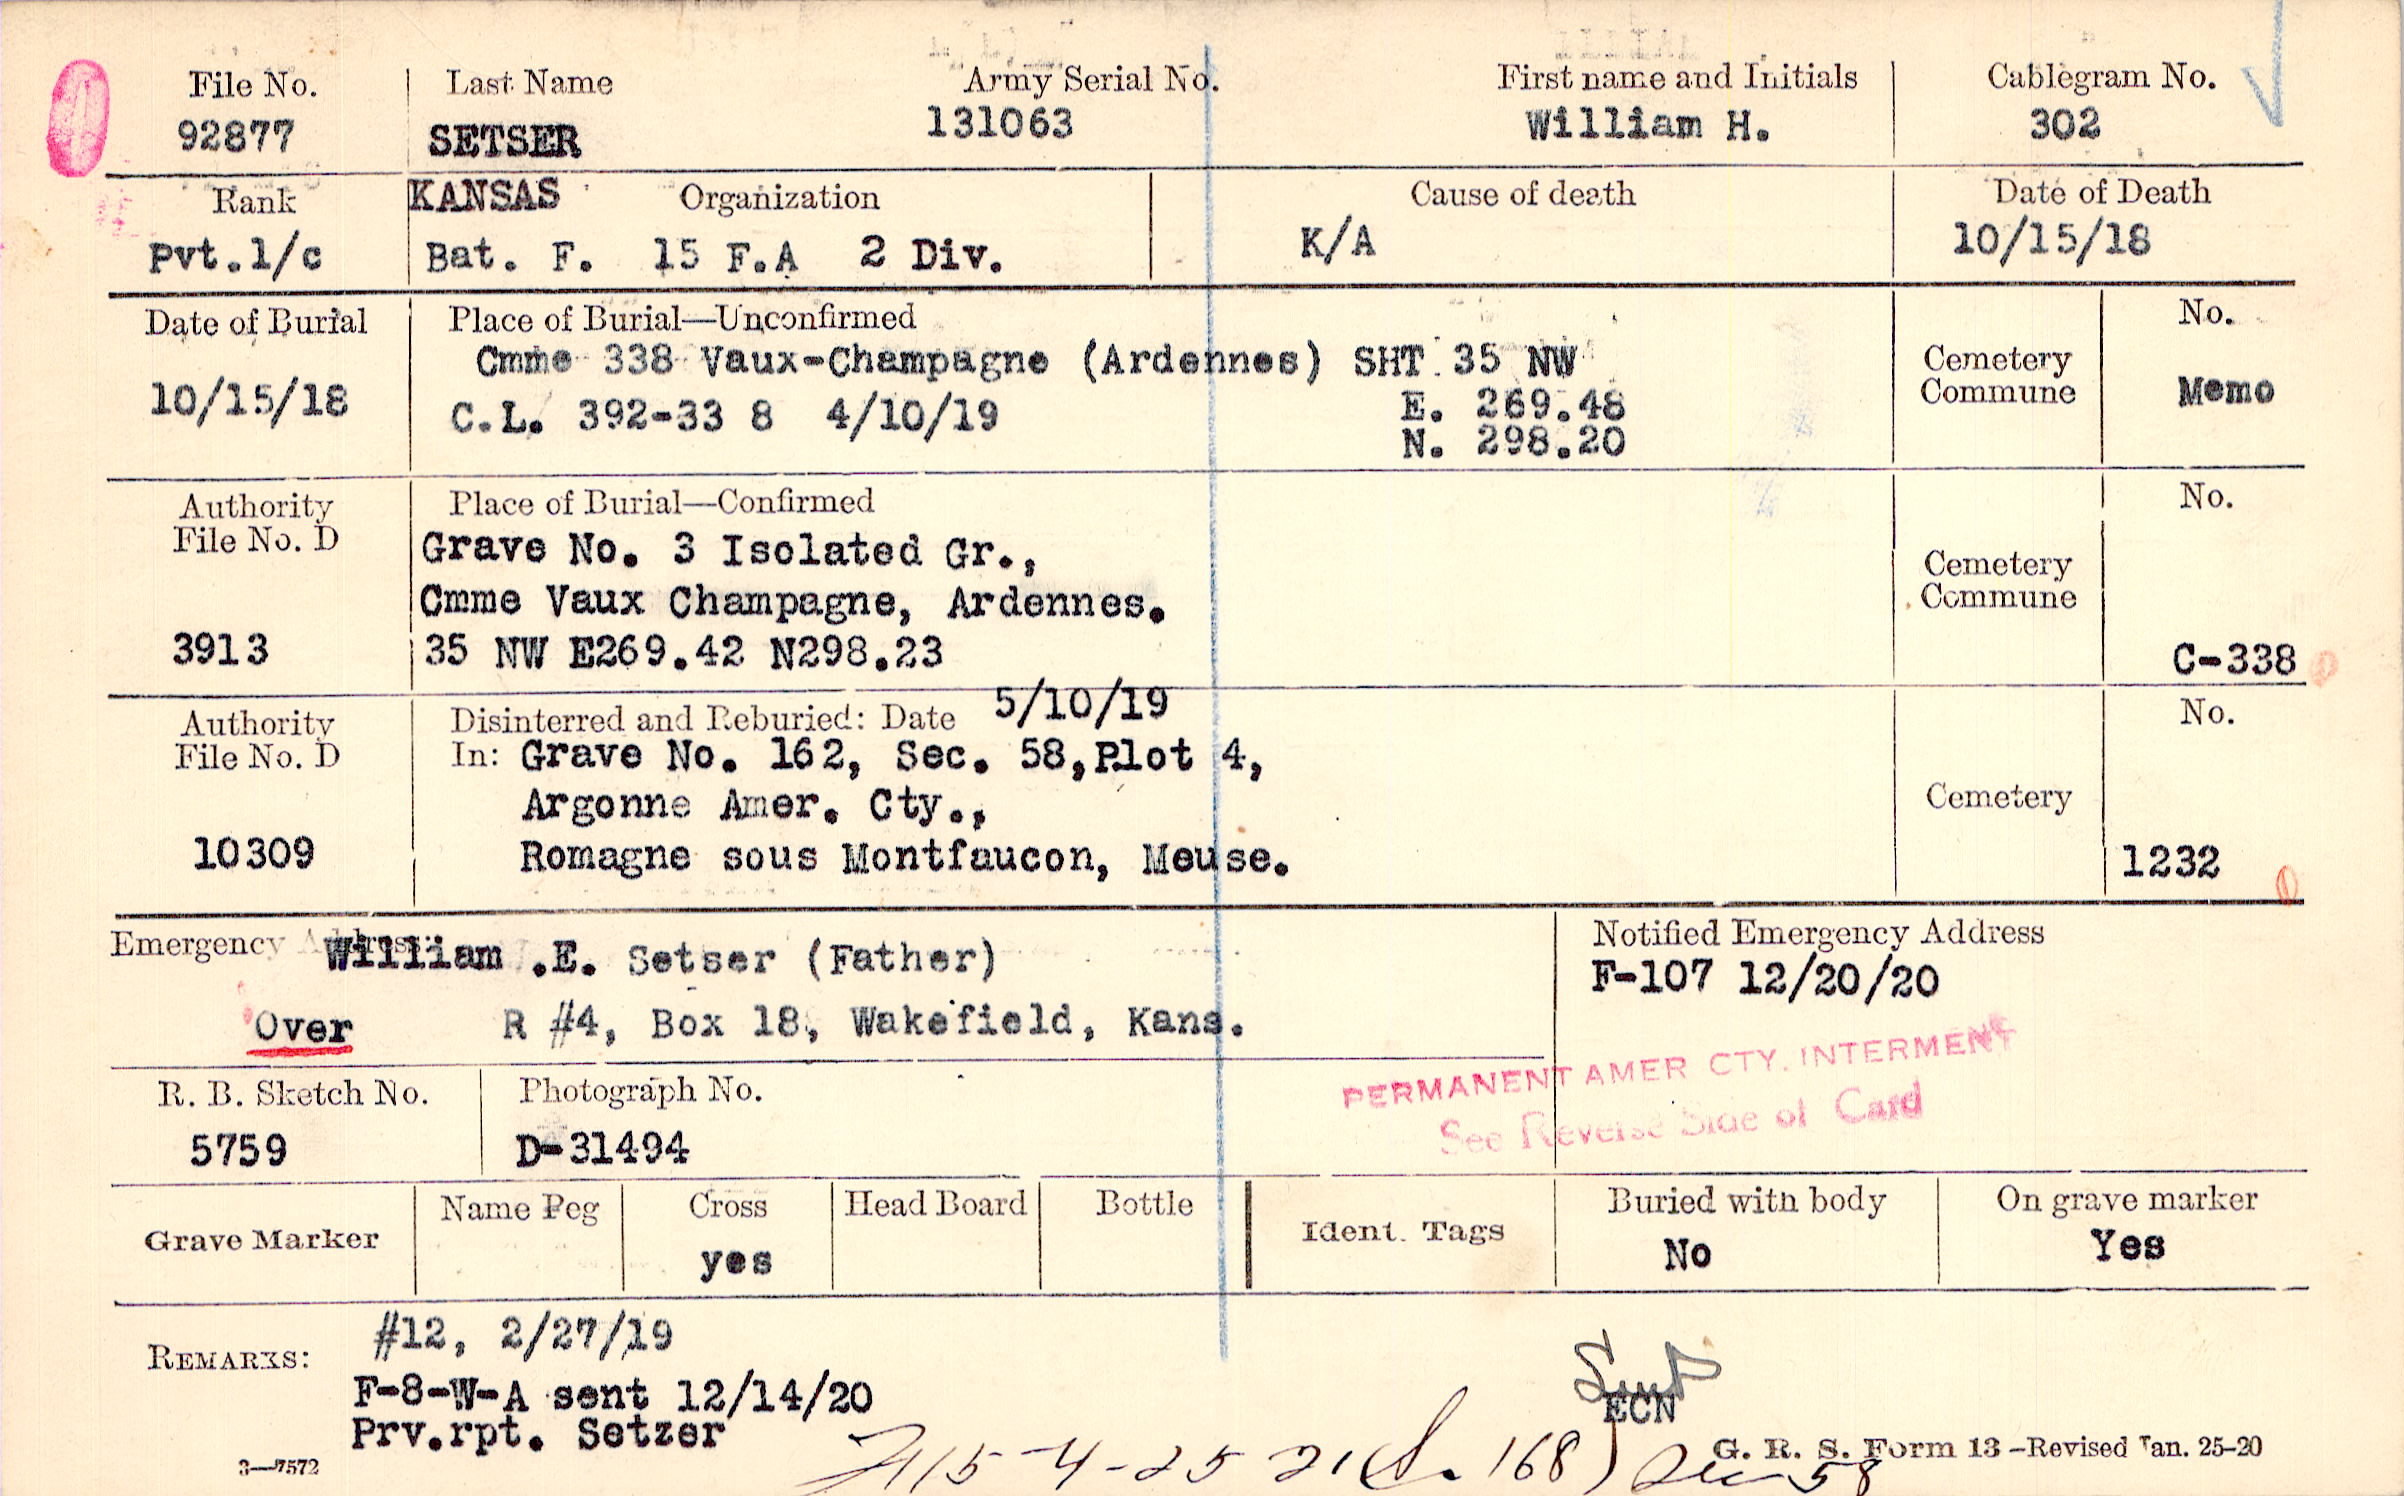 File No. Last Name Army Serial No. First name and Initials Cablegram No.
92877 SETSER 131063 William H. 302
Rank KANSAS Organization Cause of death Date of Death
Pvt.1/c Bat. F. 15 F.A 2 Div. K/A 10/15/18
Date of Burial Place of Burial—Unconfirmed No.
Cmme 338 Vaux-Champagne (Ardennes) SHT 35 NW Cemetery
10/15/18 C.L. 392-33 8 4/10/19 E. 269.48 Commune Memo
N. 298.20
Authority Place of Burial—Confirmed No.
File No. D Grave No. 3 Isolated Gr., Cemetery
Cmme Vaux Champagne, Ardennes. Commune
3913 35 NW E269.42 N298.23 C-338
Authority Disinterred and Reburied: Date 5/10/19 No.
File No. D In: Grave No. 162, Sec. 58,Plot 4,
Argonne Amer. Cty., Cemetery
10309 Romagne sous Montfaucon, Meuse. 1232
Emergency Address: William .E. Setser (Father) Notified Emergency Address
F-107 12/20/20
Over R #4, Box 18, Wakefield, Kans.
PERMANENT AMER CTY. INTERMENT
See Reverse Side of Card
R. B. Sketch No. Photograph No.
5759 D-31494
Grave Marker Name Peg Cross Head Board Bottle Ident. Tags Buried with body On grave marker
yes No Yes
REMARKS: #12, 2/27/19
F-8-W-A sent 12/14/20
Prv.rpt. Setzer
ECN
3—7572 G. R. S. Form 13—Revised Jan. 25-20